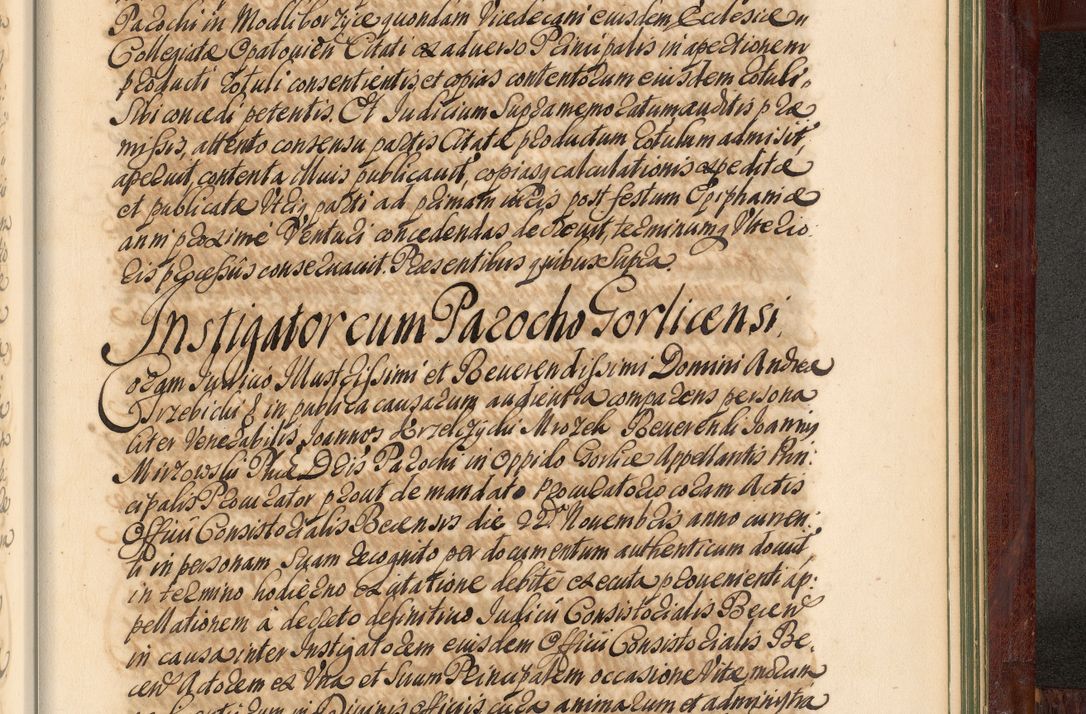 Parochi in Modliborzyce quondam Vicedecani eiusdem Ecclesiæ
Collegiatæ Opatovien Citati ex adverso Principalis in apertionem
producti rotuli consentientis, et copias contentorum eiusdem rotuli,
sibi concedi petentis. Et Judicium Supramemoratum auditis præ
missis, attento consensu partis Citatæ productum rotulum admisit,
aperuit, contenta illius publicavit, copiasq calculationis expeditæ
et publicatæ Utriq parti ad primam iuris post festum Epiphaniæ
anni proxime Venturi concedendas decrevit, terminumq Ulterio
ris processûs conservavit. Præsentibus quibus supra.
Instigator cum Parocho Gorlicensi,
Coram Judicio Illustrissimi et Reverendissimi Domini Andreæ
Trzebicki & in publica causarum audientia comparens persona
liter Venerabilis Joannes Mrozek Reverendi Joannis
Mirzowski Phiæ Dris Parochi in Oppido Gorlice Appellantis Prin:
cipalis Procurator prout de mandato procuratorio coram Actis
Officii Consistorialis Becensis die 22 Novembris anno curren:
ti in personam Suam recognito per documentum authenticum docuit,
in termino hodierno ex citatione debite executa provenienti ap:
pellationem à decreto definitivo Judicii Consistorialis Becen
in causa inter Instigatorem eiusdem Officii Consistorialis Be,
cen Actorem ex Una et Suum Principalem occasione Vitæ morum
in Divinis officiis cura animarum et administra